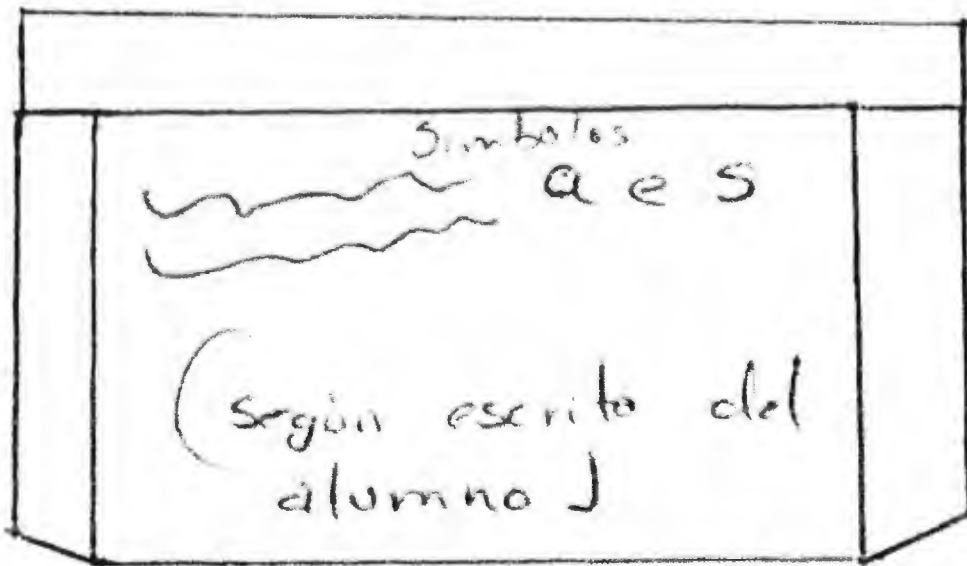 Símbolos
a e s
(según escrito del
alumno)